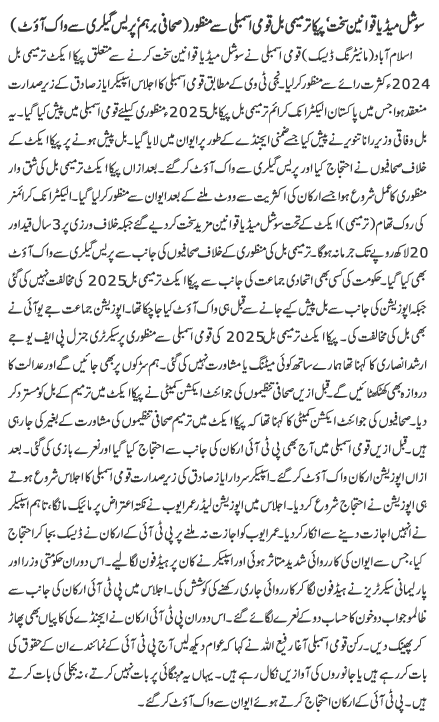 سوشل میڈیا قوانین سخت، پیکا ترمیمی بل قومی اسمبلی سے منظور (صحافی برہم، پریس گیلری سے واک آؤٹ)
اسلام آباد (مانیٹرنگ ڈیسک) قومی اسمبلی نے سوشل میڈیا قوانین سخت کرنے سے متعلق پیکا ایکٹ ترمیمی بل
2024ء کثرت رائے سے منظور کر لیا۔ نجی ٹی وی کے مطابق قومی اسمبلی کا اجلاس اسپیکر ایاز صادق کے زیر صدارت
منعقد ہوا جس میں پاکستان الیکٹرانک کرائم ترمیمی بل پیکا بل 2025ء منظوری کیلئے قومی اسمبلی میں پیش کیا گیا۔ یہ
بل وفاقی وزیر رانا تنویر نے پیش کیا جسے ضمنی ایجنڈے کے طور پر ایوان میں لایا گیا۔ بل پیش ہونے پر پیکا ایکٹ کے
خلاف صحافیوں نے احتجاج کیا اور پریس گیلری سے واک آؤٹ کر گئے۔ بعد ازاں پیکا ایکٹ ترمیمی بل کی شق وار
منظوری کا عمل شروع ہوا جسے ارکان کی اکثریت سے ووٹ ملنے کے بعد ایوان سے منظور کر لیا گیا۔ الیکٹرانک کرائمز
کی روک تھام (ترمیمی) ایکٹ کے تحت سوشل میڈیا قوانین مزید سخت کر دیے گئے جبکہ خلاف ورزی پر 3 سال قید اور
20 لاکھ روپے تک جرمانہ ہوگا۔ ترمیمی بل کی منظوری کے خلاف صحافیوں کی جانب سے پریس گیلری سے واک آؤٹ
بھی کیا گیا۔ حکومت کی کسی بھی اتحادی جماعت کی جانب سے پیکا ایکٹ ترمیمی بل 2025 کی مخالفت نہیں کی گئی
جبکہ اپوزیشن کی جانب سے بل پیش کیے جانے سے قبل ہی واک آؤٹ کیا جا چکا تھا۔ اپوزیشن جماعت جے یو آئی نے
بھی بل کی مخالفت کی۔ پیکا ایکٹ ترمیمی بل 2025 کی قومی اسمبلی سے منظوری پر سیکرٹری جنرل پی ایف یو جے
ارشد انصاری کا کہنا تھا ہمارے ساتھ کوئی میٹنگ یا مشاورت نہیں کی گئی۔ ہم سڑکوں پر بھی جائیں گے اور عدالت کا
دروازہ بھی کھٹکھٹائیں گے۔ قبل ازیں صحافتی تنظیموں کی جوائنٹ ایکشن کمیٹی نے پیکا ایکٹ میں ترمیم کے بل کو مسترد کر
دیا۔ صحافیوں کی جوائنٹ ایکشن کمیٹی کا کہنا تھا کہ پیکا ایکٹ میں ترمیم صحافتی تنظیموں کی مشاورت کے بغیر کی جا رہی
ہیں۔ قبل ازیں قومی اسمبلی میں آج بھی پی ٹی آئی ارکان کی جانب سے احتجاج کیا گیا اور نعرے بازی کی گئی۔ بعد
ازاں اپوزیشن ارکان واک آؤٹ کر گئے۔ اسپیکر سردار ایاز صادق کی زیر صدارت قومی اسمبلی کا اجلاس شروع ہوتے
ہی اپوزیشن نے احتجاج شروع کر دیا۔ اجلاس میں اپوزیشن لیڈر عمر ایوب نے نکتہ اعتراض پر مائیک مانگا، تاہم اسپیکر
نے انہیں اجازت دینے سے انکار کر دیا۔ عمر ایوب کو اجازت نہ ملنے پر پی ٹی آئی کے ارکان نے ڈیسک بجا کر احتجاج
کیا، جس سے ایوان کی کارروائی شدید متاثر ہوئی اور اسپیکر نے کان پر ہیڈ فون لگا لیے۔ اس دوران حکومتی وزرا اور
پارلیمانی سیکرٹریز نے ہیڈ فون لگا کر کارروائی جاری رکھنے کی کوشش کی۔ اجلاس میں پی ٹی آئی ارکان کی جانب سے
ظالمو جواب دو خون کا حساب دو کے نعرے لگائے گئے۔ اس دوران پی ٹی آئی ارکان نے ایجنڈے کی کاپیاں بھی پھاڑ
کر پھینک دیں۔ رکن قومی اسمبلی آغا رفیع اللہ نے کہا کہ عوام دیکھ لیں آج پی ٹی آئی کے نمائندے ان کے حقوق کی
بات کر رہے ہیں یا جانوروں کی آوازیں نکال رہے ہیں۔ یہاں یہ مہنگائی پر بات نہیں کرتے، نہ بجلی کی بات کرتے
ہیں۔ پی ٹی آئی کے ارکان احتجاج کرتے ہوئے ایوان سے واک آؤٹ کر گئے۔